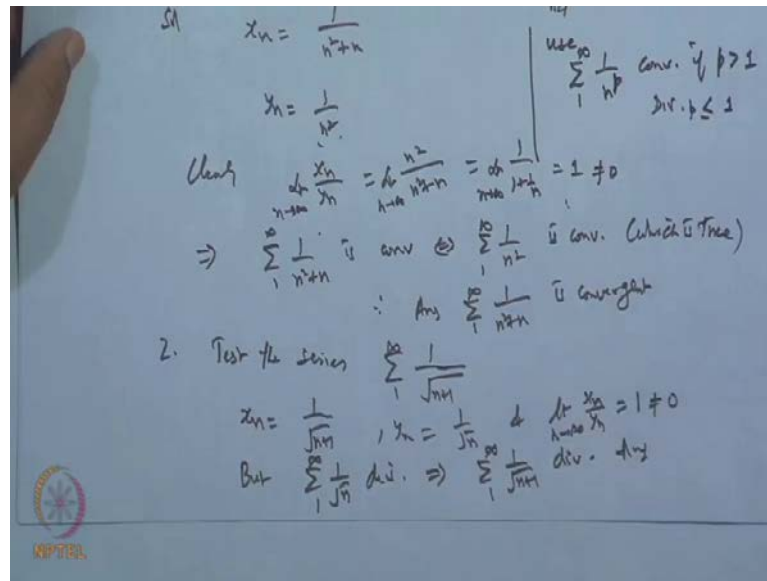 Sol xₙ = 1/(n²+n)
use ∑₁^∞ 1/n^p conv. if p > 1
Div. p ≤ 1
yₙ = 1/n²
Clearly lim_{n→∞} xₙ/yₙ = lim_{n→∞} n²/(n²+n) = lim_{n→∞} 1/(1+1/n) = 1 ≠ 0
⇒ ∑₁^∞ 1/(n²+n) is conv ⇔ ∑₁^∞ 1/n² is conv. (which is True)
∴ Ans ∑₁^∞ 1/(n²+n) is convergent
2. Test the series ∑₁^∞ 1/√(n+1)
xₙ = 1/√(n+1) , yₙ = 1/√n & lt_{n→∞} xₙ/yₙ = 1 ≠ 0
But ∑₁^∞ 1/√n div. ⇒ ∑₁^∞ 1/√(n+1) div. Ans
NPTEL